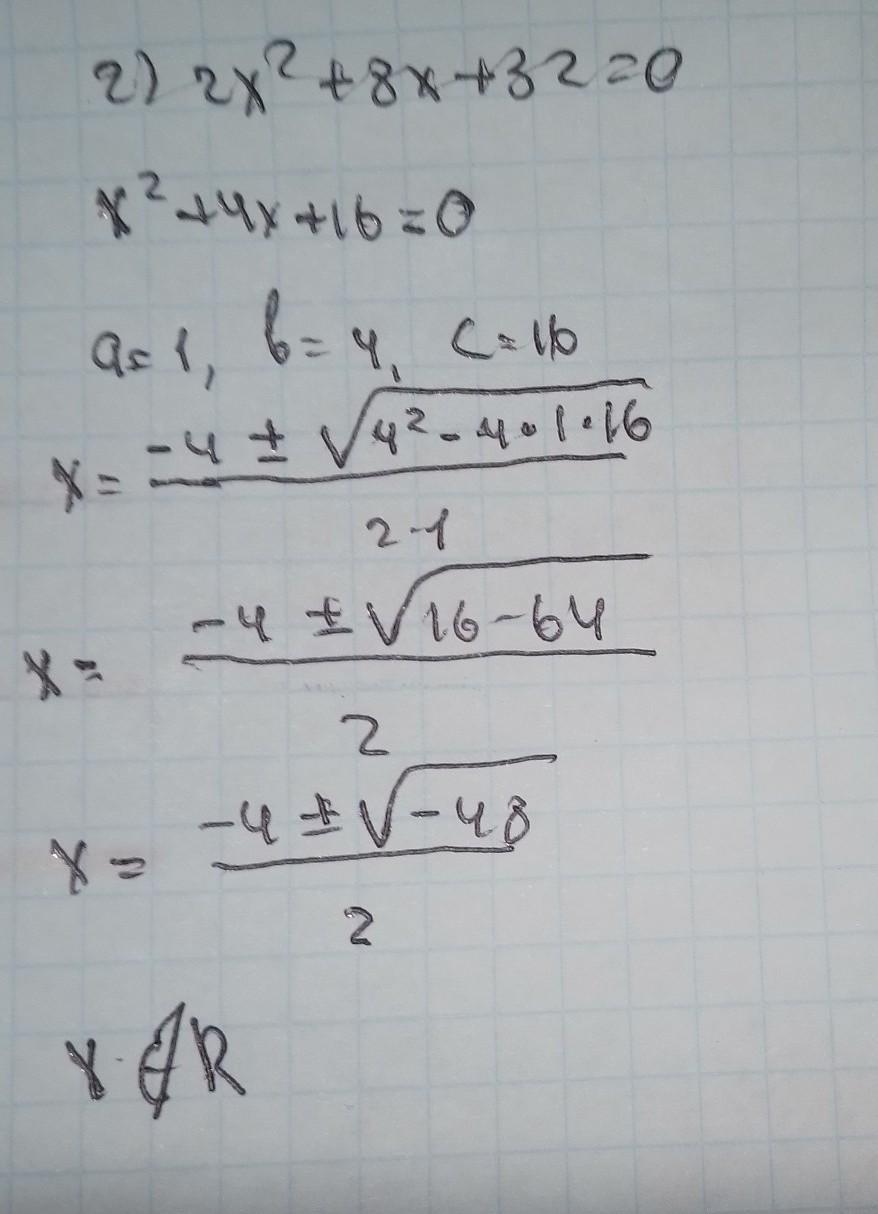 2) 2x²+8x+32=0
x²+4x+16=0
a=1, b=4, c=16
x= (-4 ± √(4²-4·1·16)) / (2·1)
x= (-4 ± √(16-64)) / 2
x= (-4 ± √(-48)) / 2
x ∉ R